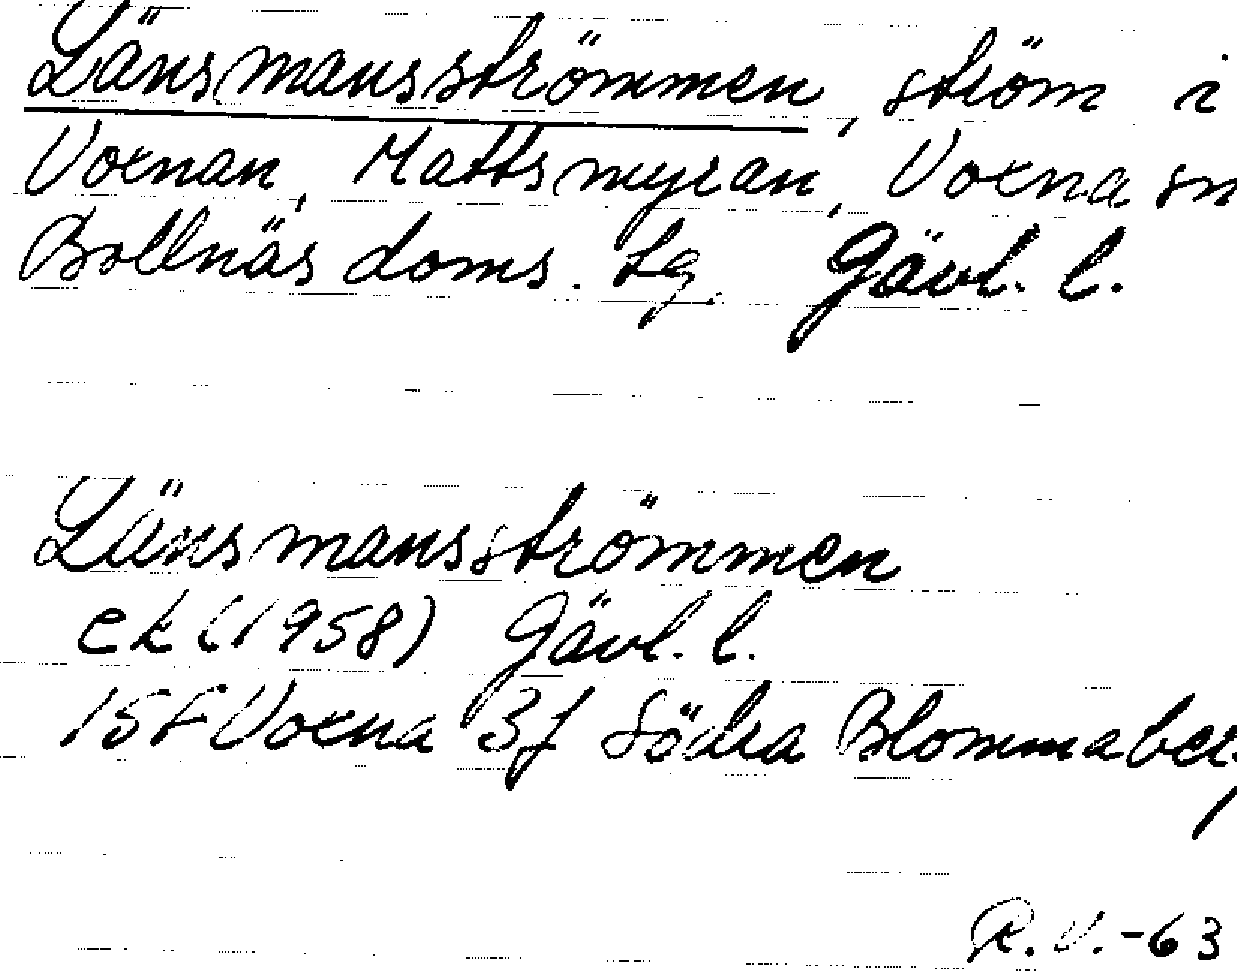 Länsmansströmmen, ström i
Voxnan, Mattsmyran, Voxna sn
Bollnäs doms. Lg. Gävl. l.
Länsmansströmmen
ek (1958) Gävl. l.
15F Voxna 3f Södra Blommaberg
R.V.-63